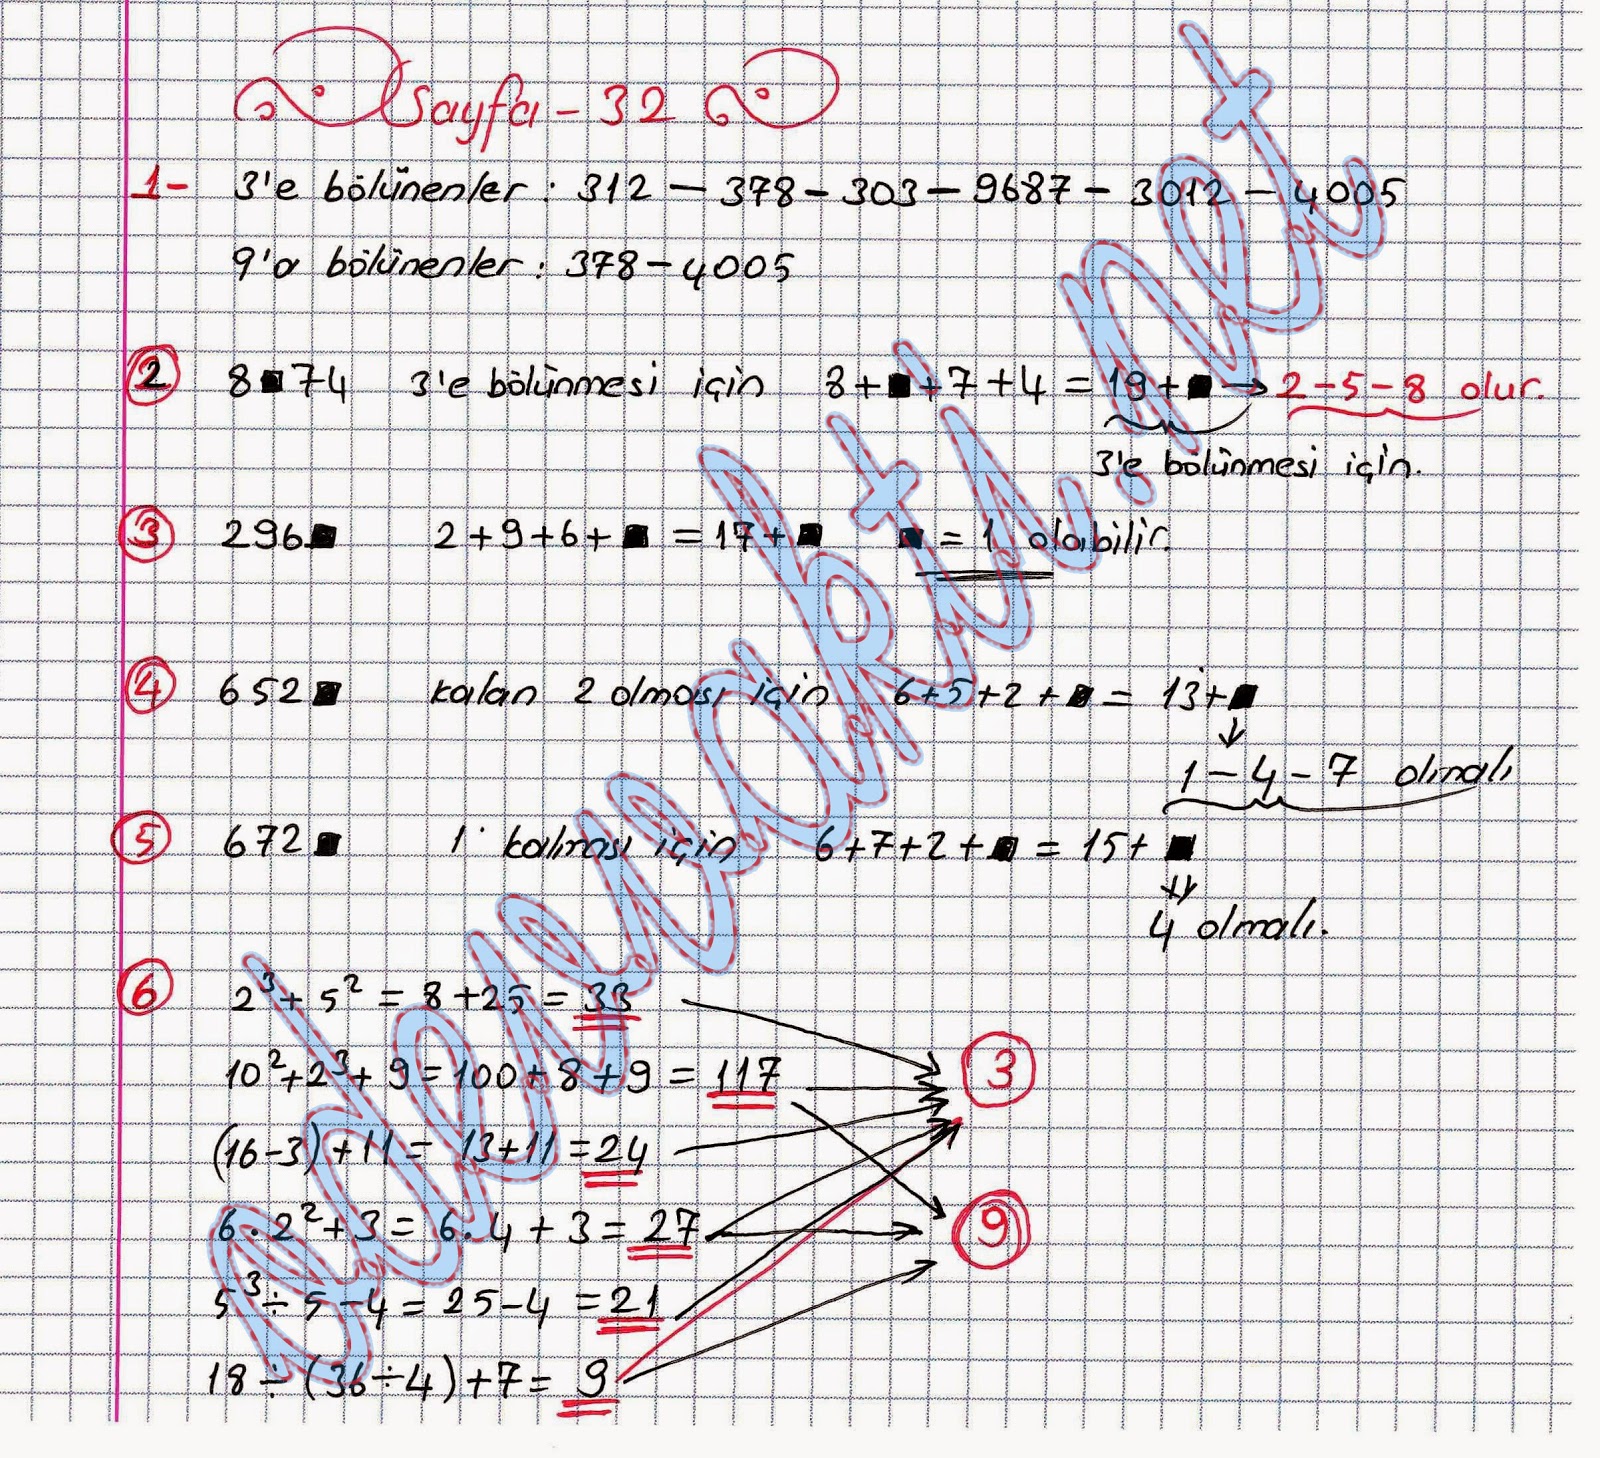 Sayfa - 32
1- 3'e bölünenler : 312 — 378 - 303 - 9687 - 3012 - 4005
9'a bölünenler : 378 - 4005
2 8■74 3'e bölünmesi için 8+■+7+4 = 19+■ → 2-5-8 olur.
3'e bölünmesi için.
3 296■ 2+9+6+■ = 17+■ ■ = 1 olabilir.
4 652■ kalan 2 olması için 6+5+2+■ = 13+■
↓
1 - 4 - 7 olmalı
5 672■ 1 kalması için 6+7+2+■ = 15+■
4 olmalı.
6 2³ + 5² = 8 + 25 = 33
10² + 2³ + 9 = 100 + 8 + 9 = 117
3
(16-3) + 11 = 13 + 11 = 24
6 . 2² + 3 = 6 . 4 + 3 = 27
9
5³ ÷ 5 - 4 = 25 - 4 = 21
18 ÷ (36 ÷ 4) + 7 = 9
odevvakti.net